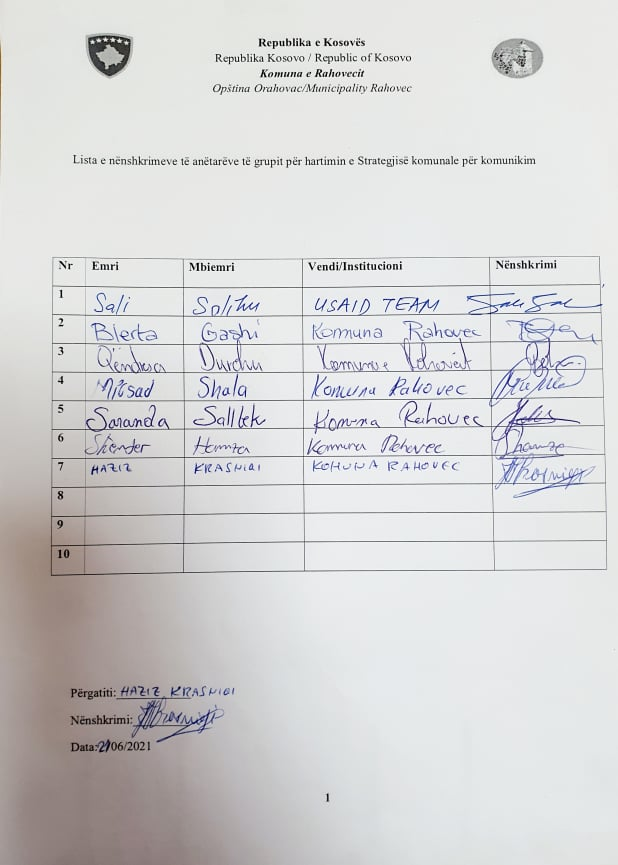 Republika e Kosovës
Republika Kosovo / Republic of Kosovo
Komuna e Rahovecit
Opština Orahovac/Municipality Rahovec
Lista e nënshkrimeve të anëtarëve të grupit për hartimin e Strategjisë komunale për komunikim
Nr Emri Mbiemri Vendi/Institucioni Nënshkrimi
1 Sali USAID TEAM
2 Blerta Gashi Komuna Rahovec
3 Qëndresa Durguti Komuna e Rahovecit
4 Mitsad Shala Komuna Rahovec
5 Saranda Komuna Rahovec
6 Skender Hamza Komuna Rahovec
7 HAZIZ KRASNIQI KOMUNA RAHOVEC
8
9
10
Përgatiti: HAZIZ KRASNIQI
Nënshkrimi:
Data:21/06/2021
1